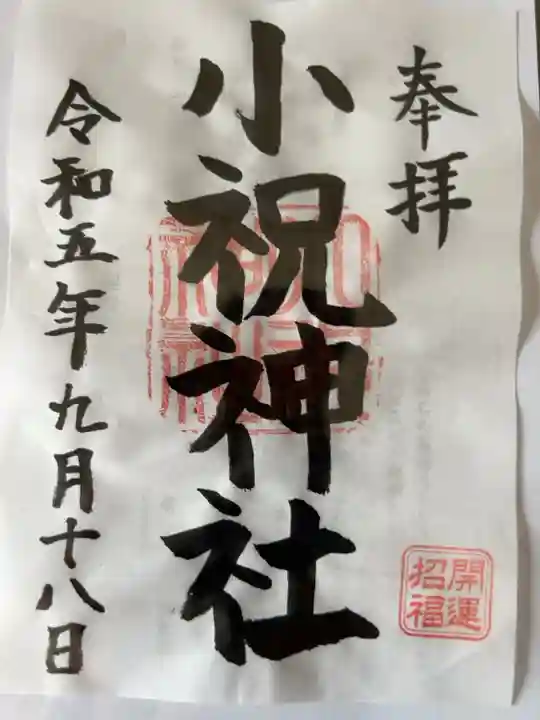 奉拝
小祝神社
令和五年九月十八日
開運
招福